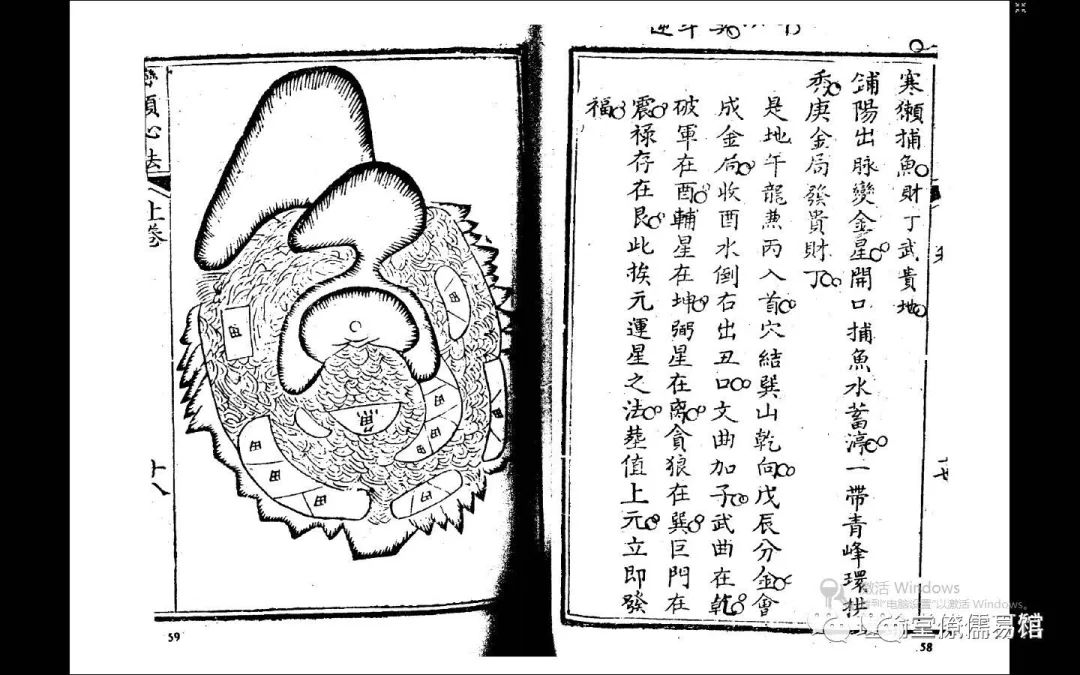 寒獺捕魚財丁武貴地
鋪陽出脉變金星開口捕魚水蓄渟一帶青峰環拱
秀庚金局發貴財丁
是地午龍兼丙入首穴結巽山乾向戊辰分金會
成金局收酉水倒右出丑口文曲加子武曲在乾
破軍在酉輔星在坤弼星在离貪狼在巽巨門在
震禄存在艮此挨元運星之法葬值上元立即發
福
58
巒頭心法
上卷
十八
魚
田
田
田
田
田
田
田
田
田
59
激活 Windows
转到"电脑设置"以激活 Windows。
堂僚儒易馆